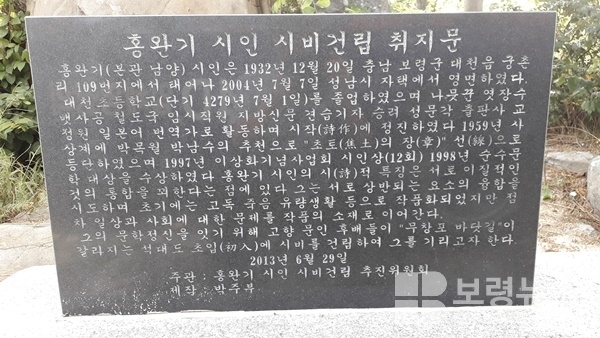 홍완기 시인 시비건립 취지문
홍완기(본관 남양) 시인은 1932년 12월 20일 충남 보령군 대천읍 궁촌
리 109번지에서 태어나 2004년 7월 7일 성남시 자택에서 영면하였다.
대천초등학교(단기 4279년 7월 1일)를 졸업하였으며 나뭇꾼 엿장수
뱃사공 월도국 임시직원 지방신문 견습기자 승려 성문각 출판사 교
정원 일본어 번역가로 활동하며 시작(詩作)에 정진하였다 1959년 사
상계에 박목월 박남수의 추천으로 "초토(焦土)의 장(章)" 선(線)으로
등단하였으며 1997년 이상화기념사업회 시인상(12회) 1998년 순수문
학 대상을 수상하였다 홍완기 시인의 시(詩)적 특징은 서로 이질적인
것의 통합을 꾀한다는 점에 있다 그는 서로 상반되는 요소의 융합을
시도하며 초기에는 고독 죽음 유랑생활 등으로 작품화되었지만 점
차 일상과 사회에 대한 문제를 작품의 소재로 이어간다.
그의 문학정신을 잇기 위해 고향 문인 후배들이 "무창포 바닷길"이
갈라지는 석대도 초입(初入)에 시비를 건립하여 그를 기리고자 한다.
2013년 6월 29일
주관 : 홍완기 시인 시비건립 추진위원회
제작 : 박주부
보령뉴